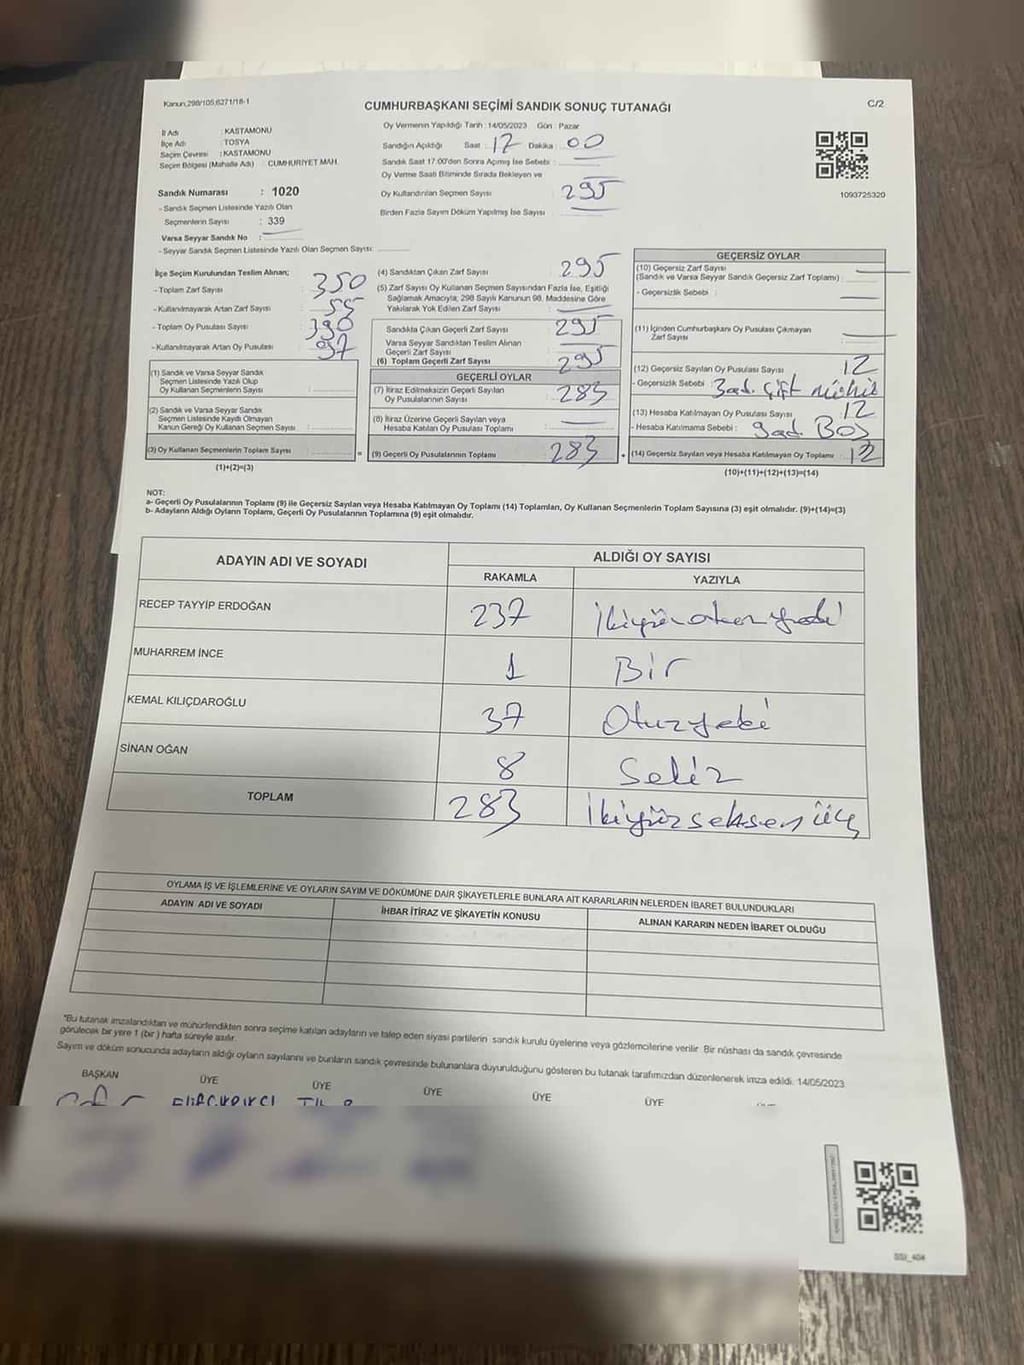 Kanun,298/105,6271/18-1
CUMHURBAŞKANI SEÇİMİ SANDIK SONUÇ TUTANAĞI
C/2
Oy Vermenin Yapıldığı Tarih : 14/05/2023 Gün : Pazar
İl Adı : KASTAMONU
İlçe Adı : TOSYA
Seçim Çevresi : KASTAMONU
Seçim Bölgesi (Mahalle Adı) : CUMHURİYET MAH.
Sandığın Açıldığı Saat : 17 Dakika : 00
Sandık Saat 17.00'den Sonra Açmış İse Sebebi :
Oy Verme Saati Bitiminde Sırada Bekleyen ve
Oy Kullandırılan Seçmen Sayısı : 295
Birden Fazla Sayım Döküm Yapılmış İse Sayısı
1093725320
Sandık Numarası : 1020
- Sandık Seçmen Listesinde Yazılı Olan
Seçmenlerin Sayısı : 339
Varsa Seyyar Sandık No :
- Seyyar Sandık Seçmen Listesinde Yazılı Olan Seçmen Sayısı:
İlçe Seçim Kurulundan Teslim Alınan;
- Toplam Zarf Sayısı : 350
- Kullanılmayarak Artan Zarf Sayısı : 55
- Toplam Oy Pusulası Sayısı : 390
- Kullanılmayarak Artan Oy Pusulası : 97
(1) Sandık ve Varsa Seyyar Sandık
Seçmen Listesinde Yazılı Olup
Oy Kullanan Seçmenlerin Sayısı :
(2) Sandık ve Varsa Seyyar Sandık
Seçmen Listesinde Kaydı Olmayan
Kanun Gereği Oy Kullanan Seçmen Sayısı :
(3) Oy Kullanan Seçmenlerin Toplam Sayısı :
(1)+(2)=(3)
(4) Sandıktan Çıkan Zarf Sayısı : 295
(5) Zarf Sayısı Oy Kullanan Seçmen Sayısından Fazla İse, Eşitliği
Sağlamak Amacıyla; 298 Sayılı Kanunun 98. Maddesine Göre
Yakılarak Yok Edilen Zarf Sayısı :
Sandıkta Çıkan Geçerli Zarf Sayısı : 295
Varsa Seyyar Sandıktan Teslim Alınan
Geçerli Zarf Sayısı :
(6) Toplam Geçerli Zarf Sayısı : 295
GEÇERLİ OYLAR
(7) İtiraz Edilmeksizin Geçerli Sayılan
Oy Pusulalarının Sayısı : 283
(8) İtiraz Üzerine Geçerli Sayılan veya
Hesaba Katılan Oy Pusulası Toplamı :
= (9) Geçerli Oy Pusulalarının Toplamı : 283 +
GEÇERSİZ OYLAR
(10) Geçersiz Zarf Sayısı
(Sandık ve Varsa Seyyar Sandık Geçersiz Zarf Toplamı) :
- Geçersizlik Sebebi :
(11) İçinden Cumhurbaşkanı Oy Pusulası Çıkmayan
Zarf Sayısı :
(12) Geçersiz Sayılan Oy Pusulası Sayısı : 12
- Geçersizlik Sebebi : 3ad. Çift mühür
(13) Hesaba Katılmayan Oy Pusulası Sayısı : 12
- Hesaba Katılmama Sebebi : 9ad. Boş
(14) Geçersiz Sayılan veya Hesaba Katılmayan Oy Toplamı : 12
(10)+(11)+(12)+(13)=(14)
NOT:
a- Geçerli Oy Pusulalarının Toplamı (9) ile Geçersiz Sayılan veya Hesaba Katılmayan Oy Toplamı (14) Toplamları, Oy Kullanan Seçmenlerin Toplam Sayısına (3) eşit olmalıdır. (9)+(14)=(3)
b- Adayların Aldığı Oyların Toplamı, Geçerli Oy Pusulalarının Toplamına (9) eşit olmalıdır.
ADAYIN ADI VE SOYADI ALDIĞI OY SAYISI
RAKAMLA YAZIYLA
RECEP TAYYİP ERDOĞAN 237 İkiyüz otuz yedi
MUHARREM İNCE 1 Bir
KEMAL KILIÇDAROĞLU 37 Otuzyedi
SİNAN OĞAN 8 Sekiz
TOPLAM 283 İkiyüzseksen üç
OYLAMA İŞ VE İŞLEMLERİNE VE OYLARIN SAYIM VE DÖKÜMÜNE DAİR ŞİKAYETLERLE BUNLARA AİT KARARLARIN NELERDEN İBARET BULUNDUKLARI
ADAYIN ADI VE SOYADI İHBAR İTİRAZ VE ŞİKAYETİN KONUSU ALINAN KARARIN NEDEN İBARET OLDUĞU
"Bu tutanak imzalandıktan ve mühürlendikten sonra seçime katılan adayların ve talep eden siyasi partilerin sandık kurulu üyelerine veya gözlemcilerine verilir. Bir nüshası da sandık çevresinde
görülecek bir yere 1 (bir) hafta süreyle asılır.
Sayım ve döküm sonucunda adayların aldığı oyların sayılarını ve bunların sandık çevresinde bulunanlara duyurulduğunu gösteren bu tutanak tarafımızdan düzenlenerek imza edildi. 14/05/2023
BAŞKAN ÜYE ÜYE ÜYE ÜYE ÜYE
SSİ_404